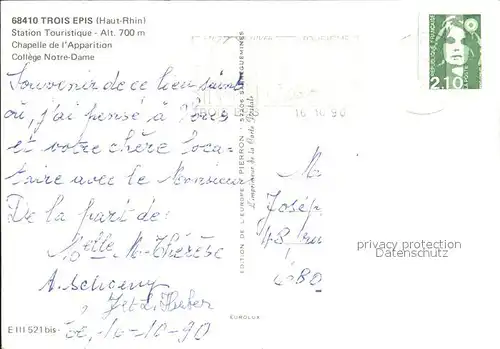 68410 TROIS EPIS (Haut-Rhin)
Station Touristique - Alt. 700 m
Chapelle de l'Apparition
Collège Notre-Dame
RÉPUBLIQUE FRANÇAISE
LA POSTE
2,10
16 10 90
Souvenir de ce lieu saint
où, j'ai pensé à
et votre chère loca-
taire avec le Monsieur
De la part de:
Melle M-Thérèse
A.
Je, 16-10-90
EDITION DE L'EUROPE PIERRON - 57206 SARREGUEMINES
L'imprimeur de la Carte Postale
M.
Josép
48 ru
680
privacy protection
Datenschutz
EUROLUX
E III 521 bis